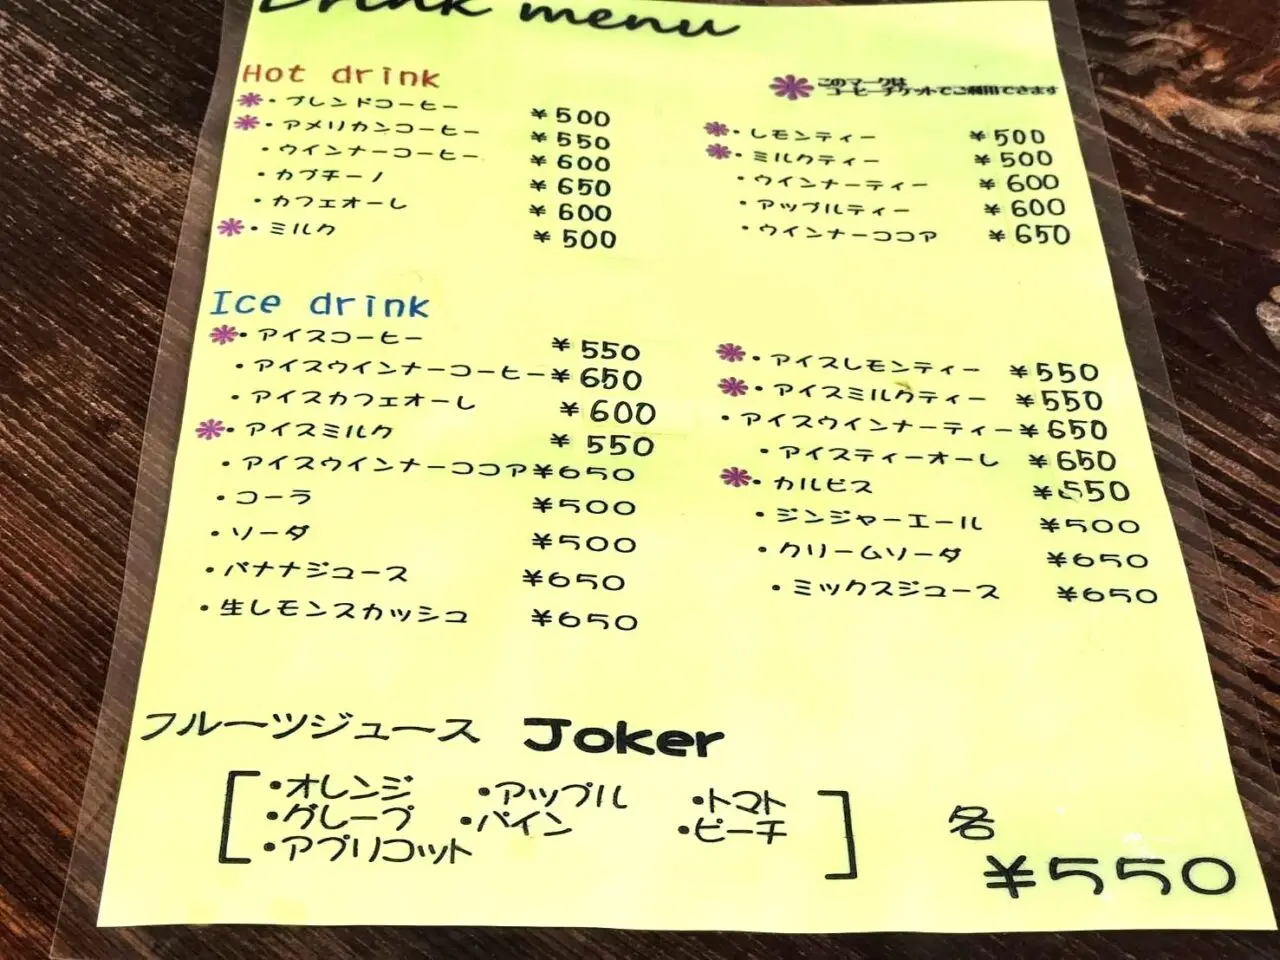 Drink menu
Hot drink
このマークは
コーヒーチケットでご利用できます
・ブレンドコーヒー ¥500
・アメリカンコーヒー ¥550
・ウインナーコーヒー ¥600
・カプチーノ ¥650
・カフェオーレ ¥600
・ミルク ¥500
・レモンティー ¥500
・ミルクティー ¥500
・ウインナーティー ¥600
・アップルティー ¥600
・ウインナーココア ¥650
Ice drink
・アイスコーヒー ¥550
・アイスウインナーコーヒー ¥650
・アイスカフェオーレ ¥600
・アイスミルク ¥550
・アイスウインナーココア ¥650
・コーラ ¥500
・ソーダ ¥500
・バナナジュース ¥650
・生レモンスカッシュ ¥650
・アイスレモンティー ¥550
・アイスミルクティー ¥550
・アイスウインナーティー ¥650
・アイスティーオーレ ¥650
・カルピス ¥550
・ジンジャーエール ¥500
・クリームソーダ ¥650
・ミックスジュース ¥650
フルーツジュース Joker
・オレンジ ・アップル ・トマト
・グレープ ・パイン ・ピーチ
・アプリコット
各
¥550